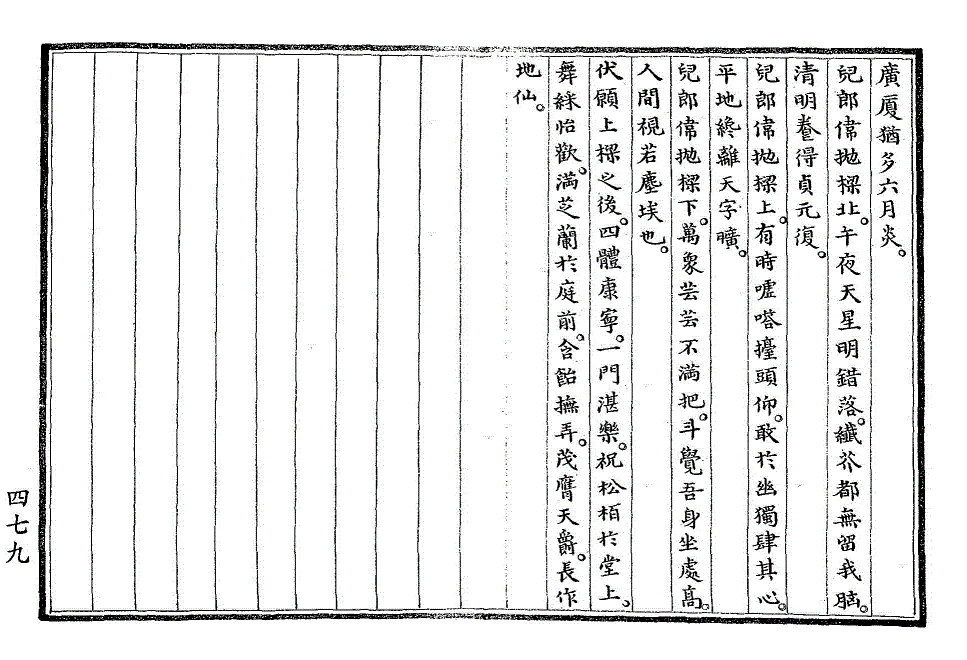 廣厦猶多六月炎。
兒郎偉拋樑北。午夜天星明錯落。纖芥都無留我胸。
清明養得貞元復。
兒郎偉拋樑上。有時嘘嗒擡頭仰。敢於幽獨肆其心。
平地終離天字曠。
兒郎偉拋樑下。萬象芸芸不滿把。斗覺吾身坐處高。
人間視若塵埃也。
伏願上樑之後。四體康寧。一門湛樂。祝松栢於堂上。
舞綵怡歡。滿芝蘭於庭前。含飴撫弄。茂膺天爵。長作
地仙。
四七九